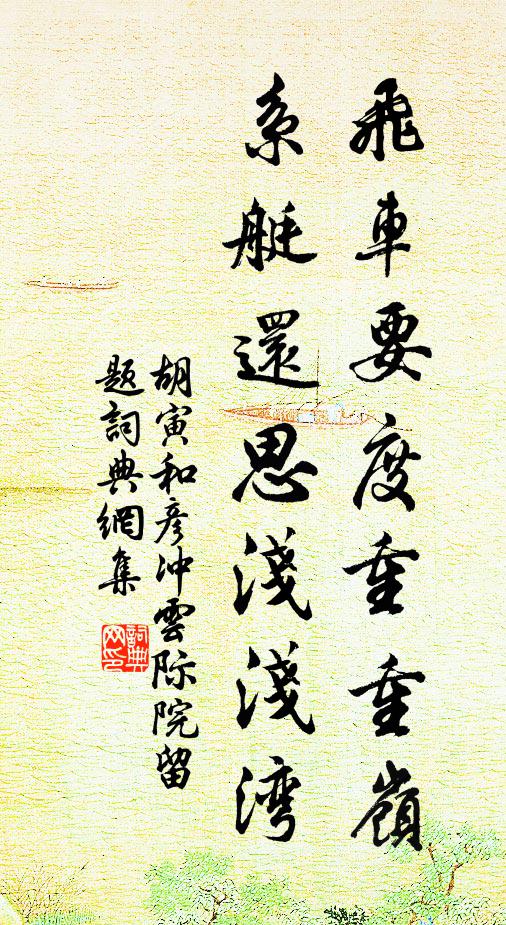 飛車要度重重嶺
系艇還思淺淺湾
胡寅和彥冲雲际院留
题詞典網集
詞典
网印